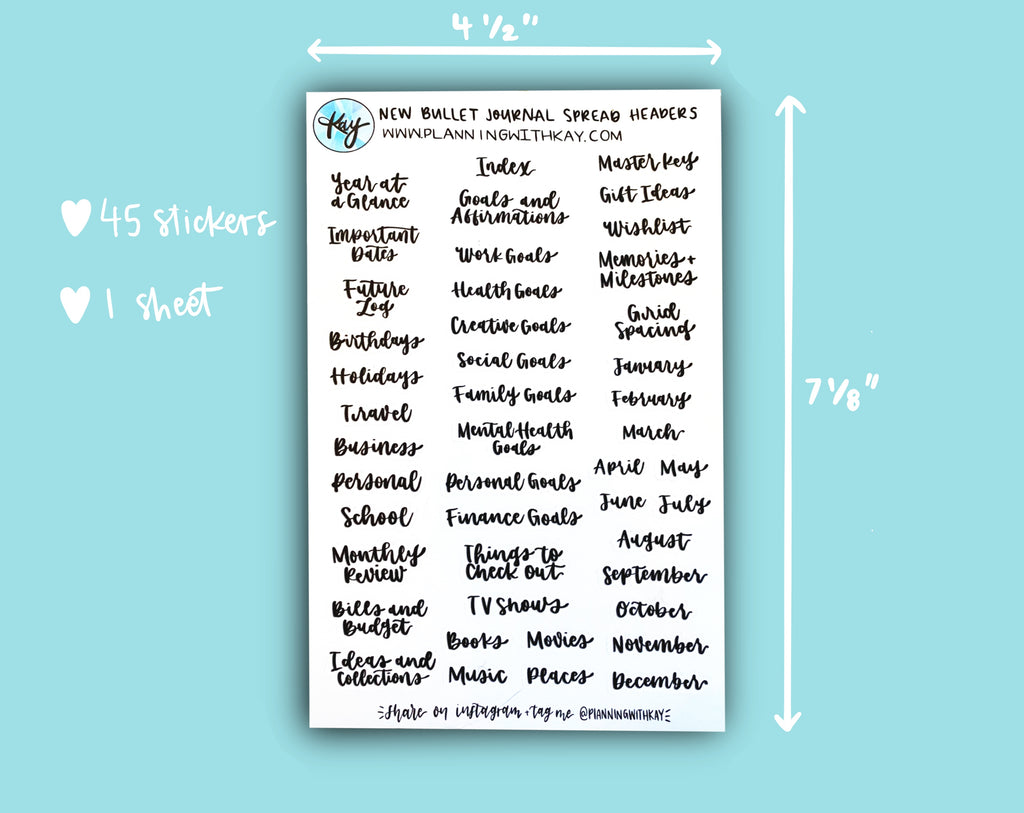 4 ½"
Kay
NEW BULLET JOURNAL SPREAD HEADERS
WWW.PLANNINGWITHKAY.COM
Year at
a Glance
Important
Dates
Future
Log
Birthdays
Holidays
Travel
Business
Personal
School
Monthly
Review
Bills and
Budget
Ideas and
Collections
Index
Goals and
Affirmations
Work Goals
Health Goals
Creative Goals
Social Goals
Family Goals
Mental Health
Goals
Personal Goals
Finance Goals
Things to
Check out
TV Shows
Books Movies
Music Places
Master Key
Gift Ideas
Wishlist
Memories +
Milestones
Grid
Spacing
January
February
March
April May
June July
August
September
October
November
December
Share on instagram + tag me @PLANNINGWITHKAY
45 stickers
1 sheet
7 ⅛"